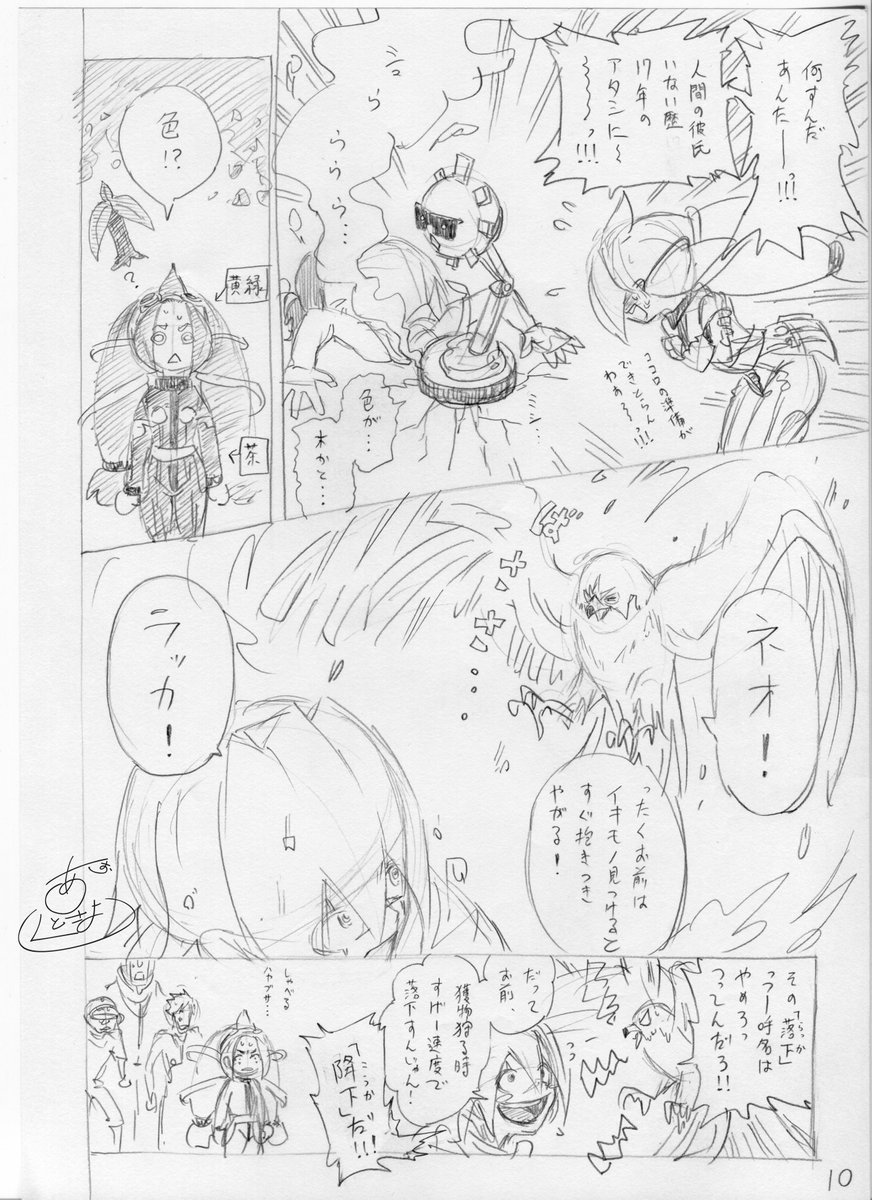 何すんだ
あんたーーっ!!!
人間の彼氏
いない歴
17年の
アタシに〜
〜〜〜っ!!!
ココロの準備が
できとらん
わぁろーっ!!!
ミシ…
色が…
木かと…
色!?
？
黄緑
茶
ネオ！
ばっ
ったくお前は
イキモノ見つけると
すぐ抱きつき
やがる！
ラッカ！
その「落下」
らっか
っつー呼名は
やめろっ
つってんだろ!!
だって
お前、
獲物狩る時
すげー速度で
落下すんじゃん！
「降下」だ!!!
こうか
しゃべる
ハヤブサ…
10